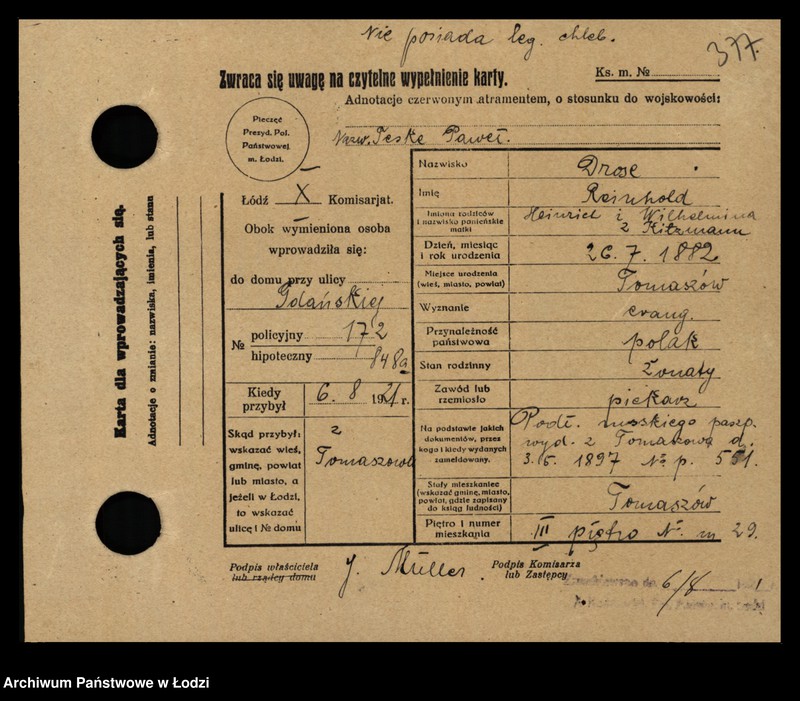 Nie posiada leg. chleb.
377.
Zwraca się uwagę na czytelne wypełnienie karty.
Ks. m. №
Adnotacje czerwonym atramentem, o stosunku do wojskowości:
Pieczęć
Prezyd. Pol.
Państwowej
m. Łodzi.
Nazw. Teske Paweł.
Karta dla wprowadzających się.
Adnotacje o zmianie: nazwiska, imienia, lub stanu
Łódź X Komisarjat.
Obok wymieniona osoba
wprowadziła się:
do domu przy ulicy
Gdańskiej
№ policyjny 172
hipoteczny 848a
Kiedy przybył 6. 8 1921 r.
Skąd przybył:
wskazać wieś,
gminę, powiat
lub miasto, a
jeżeli w Łodzi,
to wskazać
ulicę i № domu
z
Tomaszowa
Nazwisko Drose
Imię Reinhold
Imiona rodziców i nazwisko panieńskie matki Heinrich i Wilhelmina
z Kitzmann
Dzień, miesiąc i rok urodzenia 26. 7. 1882
Miejsce urodzenia (wieś, miasto, powiat) Tomaszów
Wyznanie evang.
Przynależność państwowa polak
Stan rodzinny żonaty
Zawód lub rzemiosło piekarz
Na podstawie jakich dokumentów, przez kogo i kiedy wydanych zameldowany.
Podł. russkiego paszp.
wyd. z Tomaszowa d.
3. 1897 № p.
Stały mieszkaniec (wskazać gminę, miasto, powiat, gdzie zapisany do ksiąg ludności) Tomaszów
Piętro i numer mieszkania III piętro №. m 29.
Podpis właściciela
lub rządcy domu
J. Müller.
Podpis Komisarza
lub Zastępcy
6/8
Archiwum Państwowe w Łodzi